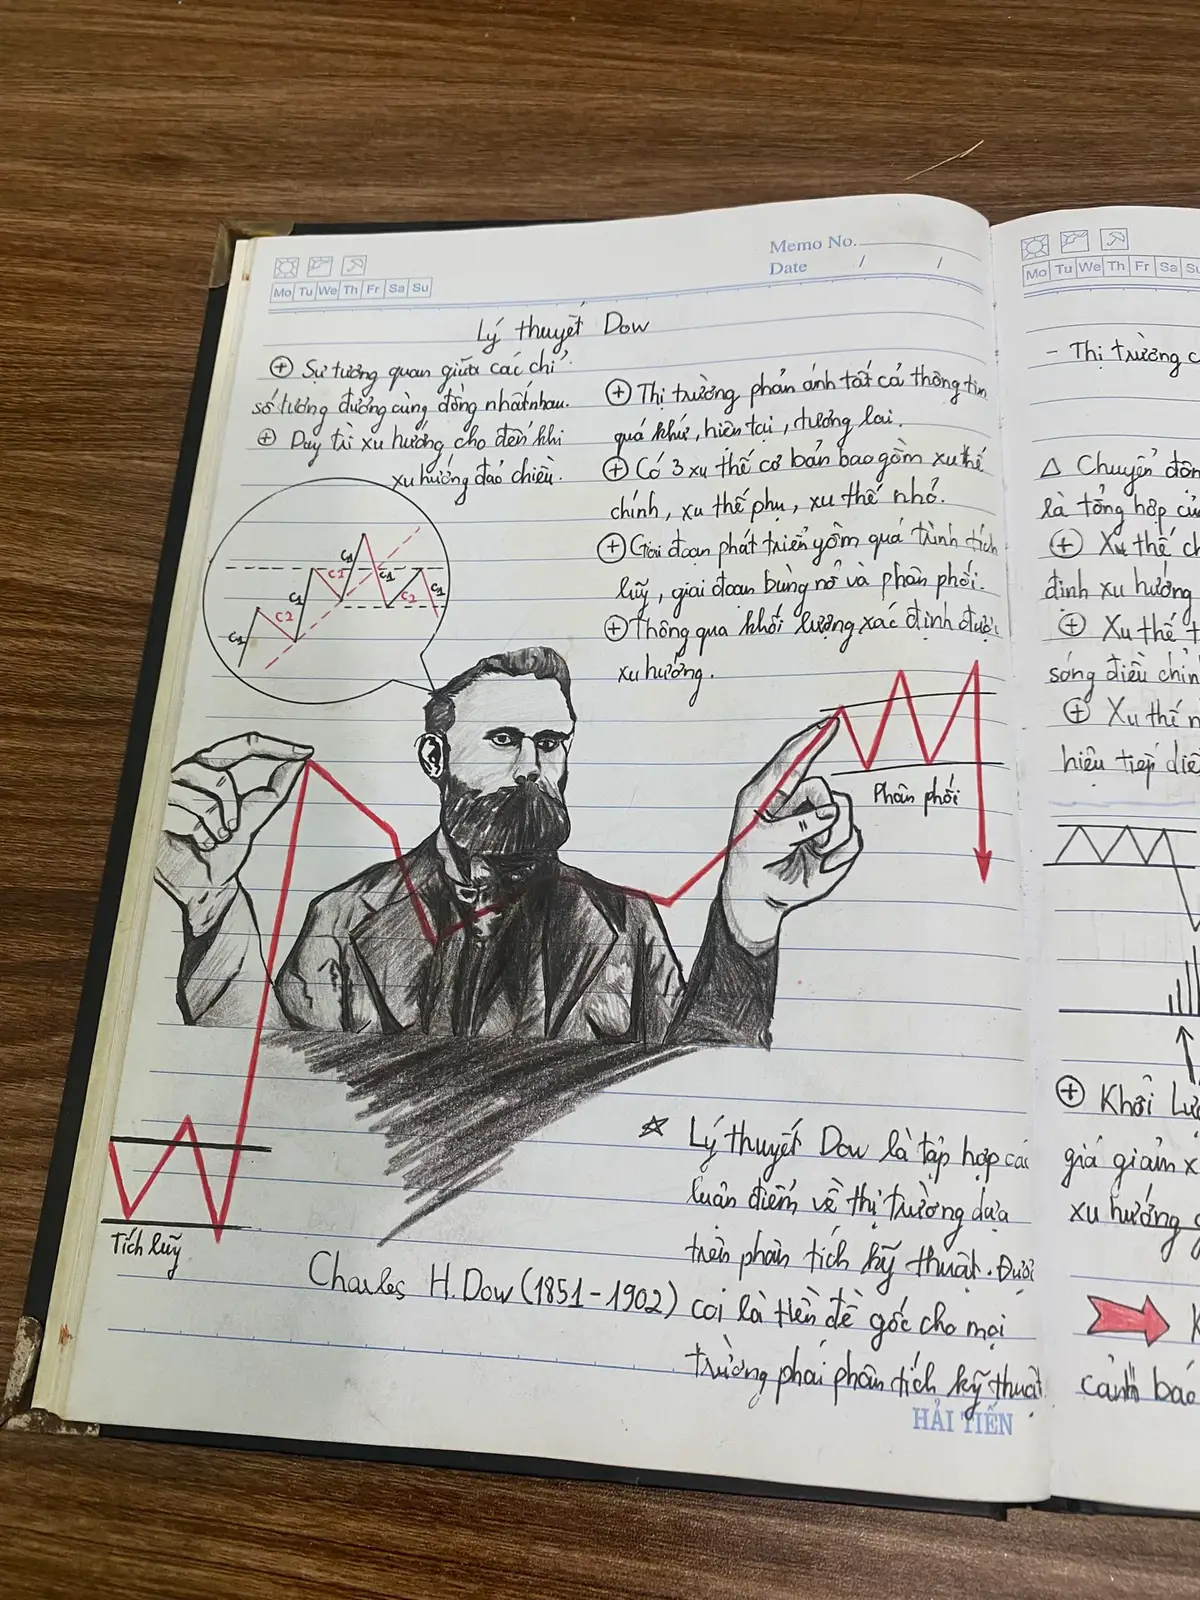 Memo No.
Date / /
Mo Tu We Th Fr Sa Su
Lý thuyết Dow
+ Sự tương quan giữa các chỉ
số tương đương cùng đồng nhất nhau.
+ Duy trì xu hướng cho đến khi
xu hướng đảo chiều.
C1 C2 C1 C2 C1 C1 C2 C1
+ Thị trường phản ánh tất cả thông tin
quá khứ, hiện tại, tương lai.
+ Có 3 xu thế cơ bản bao gồm xu thế
chính, xu thế phụ, xu thế nhỏ.
+ Giai đoạn phát triển gồm quá trình tích
lũy, giai đoạn bùng nổ và phân phối.
+ Thông qua khối lượng xác định được
xu hướng.
Phân phối
Tích luỹ
Charles H. Dow (1851 - 1902)
☆ Lý thuyết Dow là tập hợp các
luận điểm về thị trường dựa
trên phân tích kỹ thuật. Được
coi là tiền đề gốc cho mọi
trường phái phân tích kỹ thuật
HẢI TIẾN
Mo Tu We Th Fr Sa Su
- Thị trường
△ Chuyển
là tổng hợp
+ Xu thế
định xu hướng
+ Xu thế
sóng điều
+ Xu thế
hiệu tiếp
+ Khối
giá giảm
xu hướng
cảnh báo